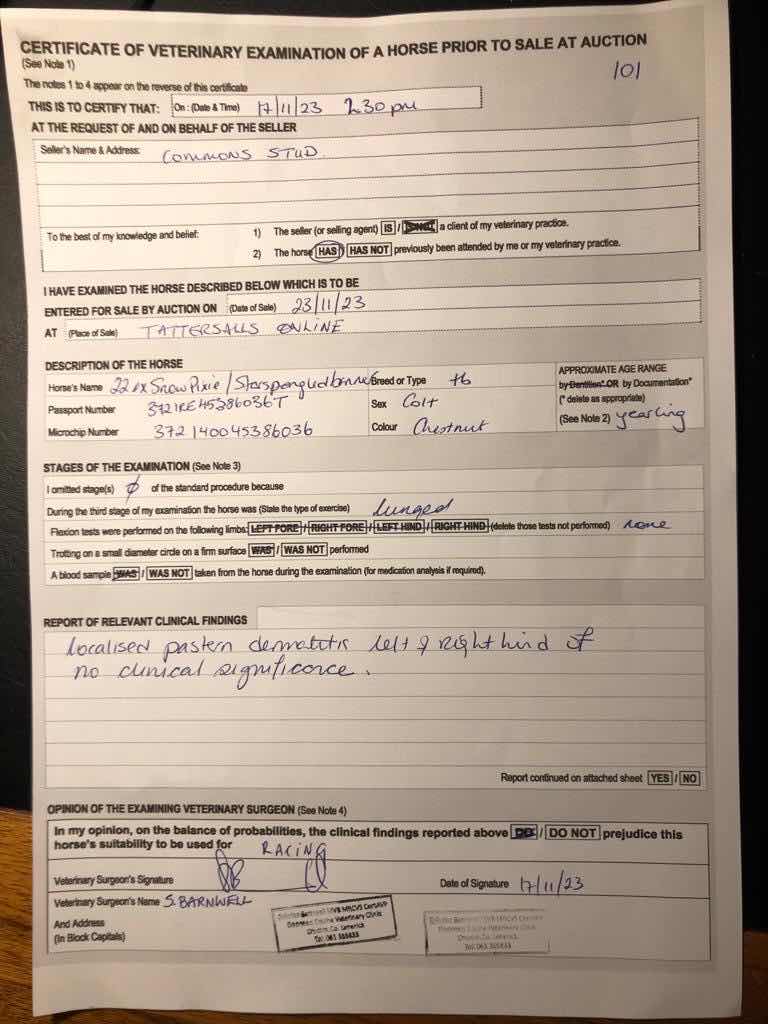 CERTIFICATE OF VETERINARY EXAMINATION OF A HORSE PRIOR TO SALE AT AUCTION
(See Note 1)
101
The notes 1 to 4 appear on the reverse of this certificate
THIS IS TO CERTIFY THAT: On : (Date & Time) 17/11/23 2.30pm
AT THE REQUEST OF AND ON BEHALF OF THE SELLER
Seller's Name & Address: COMMONS STUD
To the best of my knowledge and belief: 1) The seller (or selling agent) IS / IS NOT a client of my veterinary practice.
2) The horse HAS / HAS NOT previously been attended by me or my veterinary practice.
I HAVE EXAMINED THE HORSE DESCRIBED BELOW WHICH IS TO BE
ENTERED FOR SALE BY AUCTION ON (Date of Sale) 23/11/23
AT (Place of Sale) TATTERSALLS ONLINE
DESCRIPTION OF THE HORSE
Horse's Name 22 ex Snow Pixie / Starspangledbanner Breed or Type tb
Passport Number 372IRE45386036T Sex Colt
Microchip Number 372140045386036 Colour Chestnut
APPROXIMATE AGE RANGE
by Dentition* OR by Documentation*
(* delete as appropriate)
(See Note 2) yearling
STAGES OF THE EXAMINATION (See Note 3)
I omitted stage(s) ø of the standard procedure because
During the third stage of my examination the horse was (State the type of exercise) lunged
Flexion tests were performed on the following limbs: LEFT FORE / RIGHT FORE / LEFT HIND / RIGHT HIND (delete those tests not performed) none
Trotting on a small diameter circle on a firm surface WAS / WAS NOT performed
A blood sample WAS / WAS NOT taken from the horse during the examination (for medication analysis if required).
REPORT OF RELEVANT CLINICAL FINDINGS
localised pastern dermatitis left & right hind of
no clinical significance.
Report continued on attached sheet YES / NO
OPINION OF THE EXAMINING VETERINARY SURGEON (See Note 4)
In my opinion, on the balance of probabilities, the clinical findings reported above DO / DO NOT prejudice this
horse's suitability to be used for RACING
Veterinary Surgeon's Signature Date of Signature 17/11/23
Veterinary Surgeon's Name S. BARNWELL
And Address
(In Block Capitals)
MVB MRCVS CertAVP
Equine Veterinary Clinic
Co. Limerick